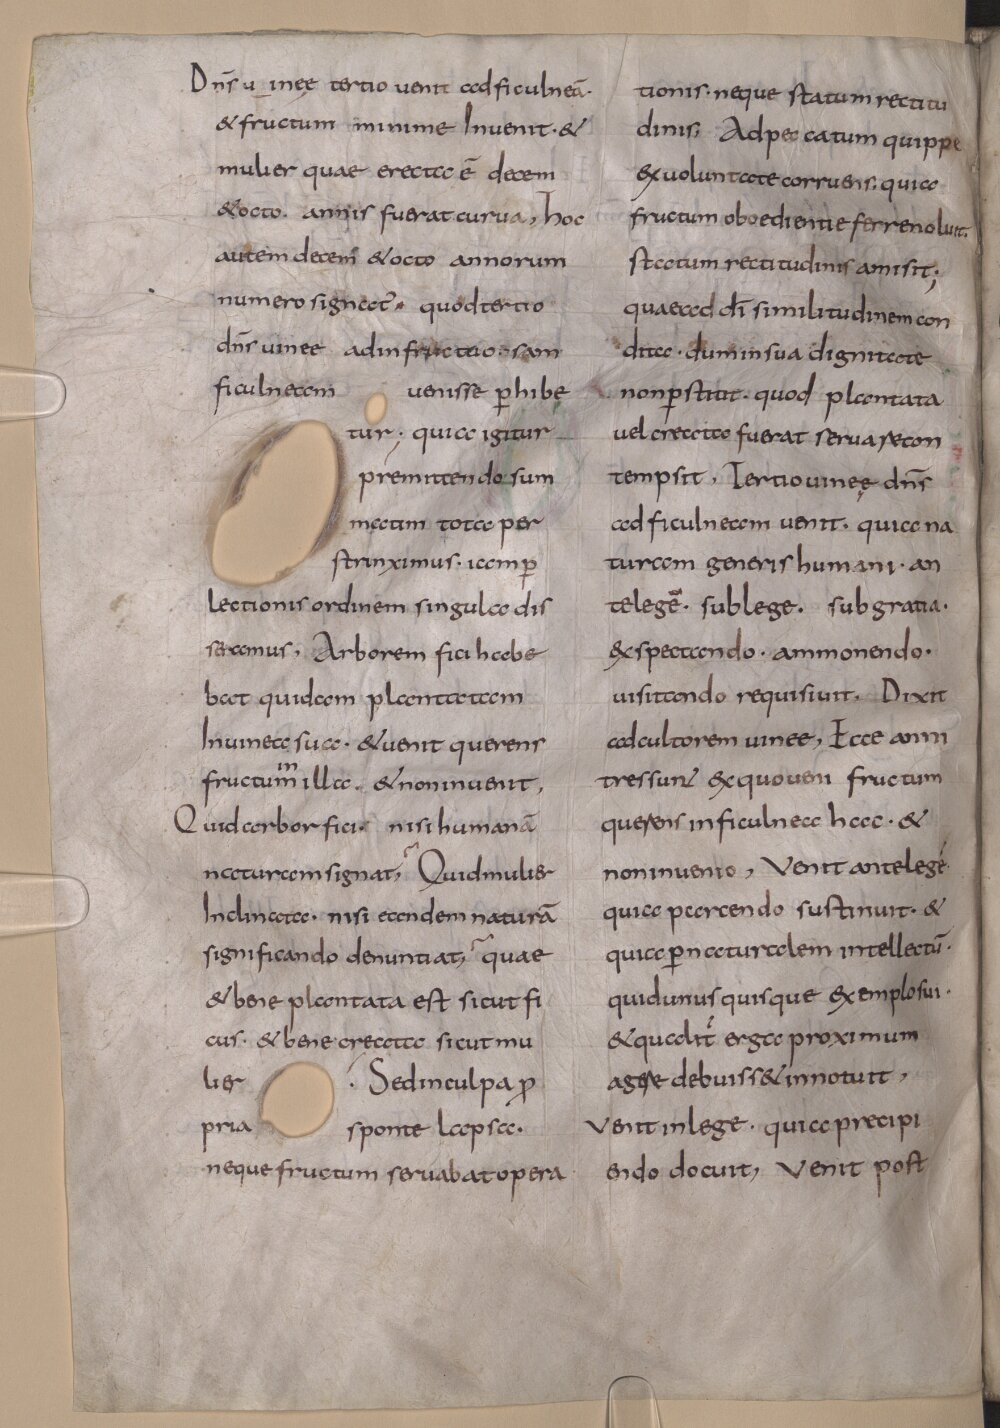 Dn̄s uinęę tertio uenit ad ficulneā·
& fructum minime Inuenit· &
mulier quae erecta ē decem
& octo· annis fuerat curua, hoc
autem decem & octo annorum
numero signat᷑· quod tertio
dn̄s uinee ad infructuosam
ficulneam uenisse ꝑhibe
tur; quia igitur
premittendo sum
matim tota per
strinximus· iam ꝑ
lectionis ordinem singula dis
seramus, Arborem fici habe
bat quidam plantatam
In uinea sua· & uenit querens
fructum in illa· & non inuenit,
Quid arbor fici· nisi humanā
naturam signat; Quid mulier
Inclinata· nisi eandem naturā
significando denuntiat; quae
& bene plantata est sicut fi
cus· & bene creata sicut mu
lier · Sed in culpa ꝓ
pria sponte lapsa·
neque fructum seruabat opera
tionis· neque statum rectitu
dinis; Ad peccatum quippe
ex uoluntate corruens· quia
fructum oboedientie ferre noluit·
statum rectitudinis amisit;
quae ad dī similitudinem con
dita· dum in sua dignitate
non ꝑstitit· quod plantata
uel creata fuerat seruare con
tempsit, Tertio uineę dn̄s
ad ficulneam uenit· quia na
turam generis humani· an
te legē· sub lege· sub gratia·
exspectando· ammonendo·
uisitando requisiuit, Dixit
ad cultorem uinee, Ecce anni
tres sunt ex quo ueni fructum
querens in ficulnea hac· &
non inuenio, Venit ante legē
quia parcendo sustinuit· &
quia ꝑ naturalem intellectū·
quid unusquisque exemplo sui·
& qualit̄ erga proximum
agere debuiss& innotuit,
Venit in lege· quia precipi
endo docuit, Venit post